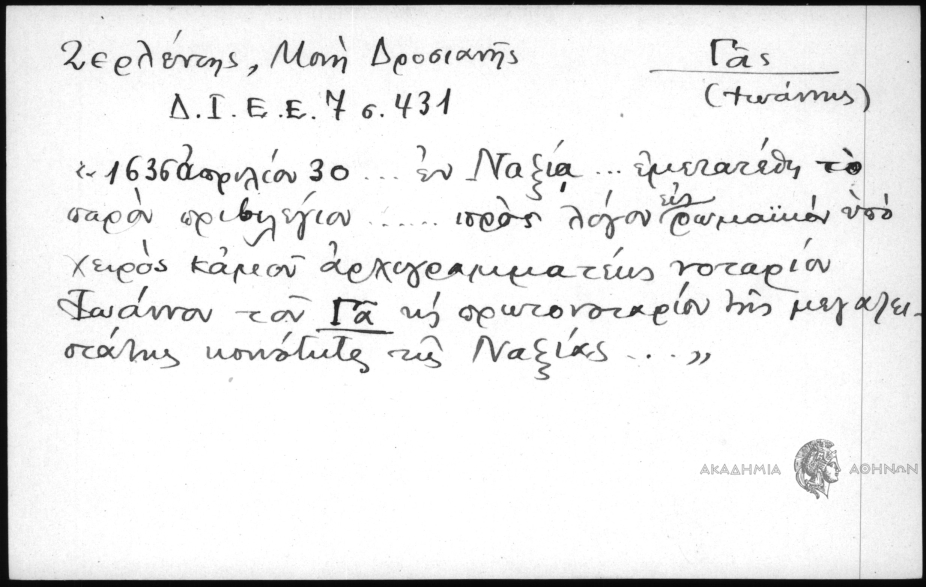 Ζερλέντης, Μονὴ Δροσιανῆς
Γᾶς
(Ἰωάννης)
Δ.Ι.Ε.Ε. 7 σ. 431
«1636 ἀπριλίου 30 ... ἐν Ναξίᾳ ... ἐμετατέθη τὸ
παρὸν πριβιλέγιον ...... πρὸς λόγον εἰς ρωμαϊκὸν ὑπὸ
χειρὸς κἀμοῦ ἀρχιγραμματέως νοταρίου
Ἰωάννου τοῦ Γᾶ κὴ πρωτονοταρίου τῆς μεγαλει-
οτάτης κοινότητος τῆς Ναξίας ...»
ΑΚΑΔΗΜΙΑ ΑΘΗΝΩΝ